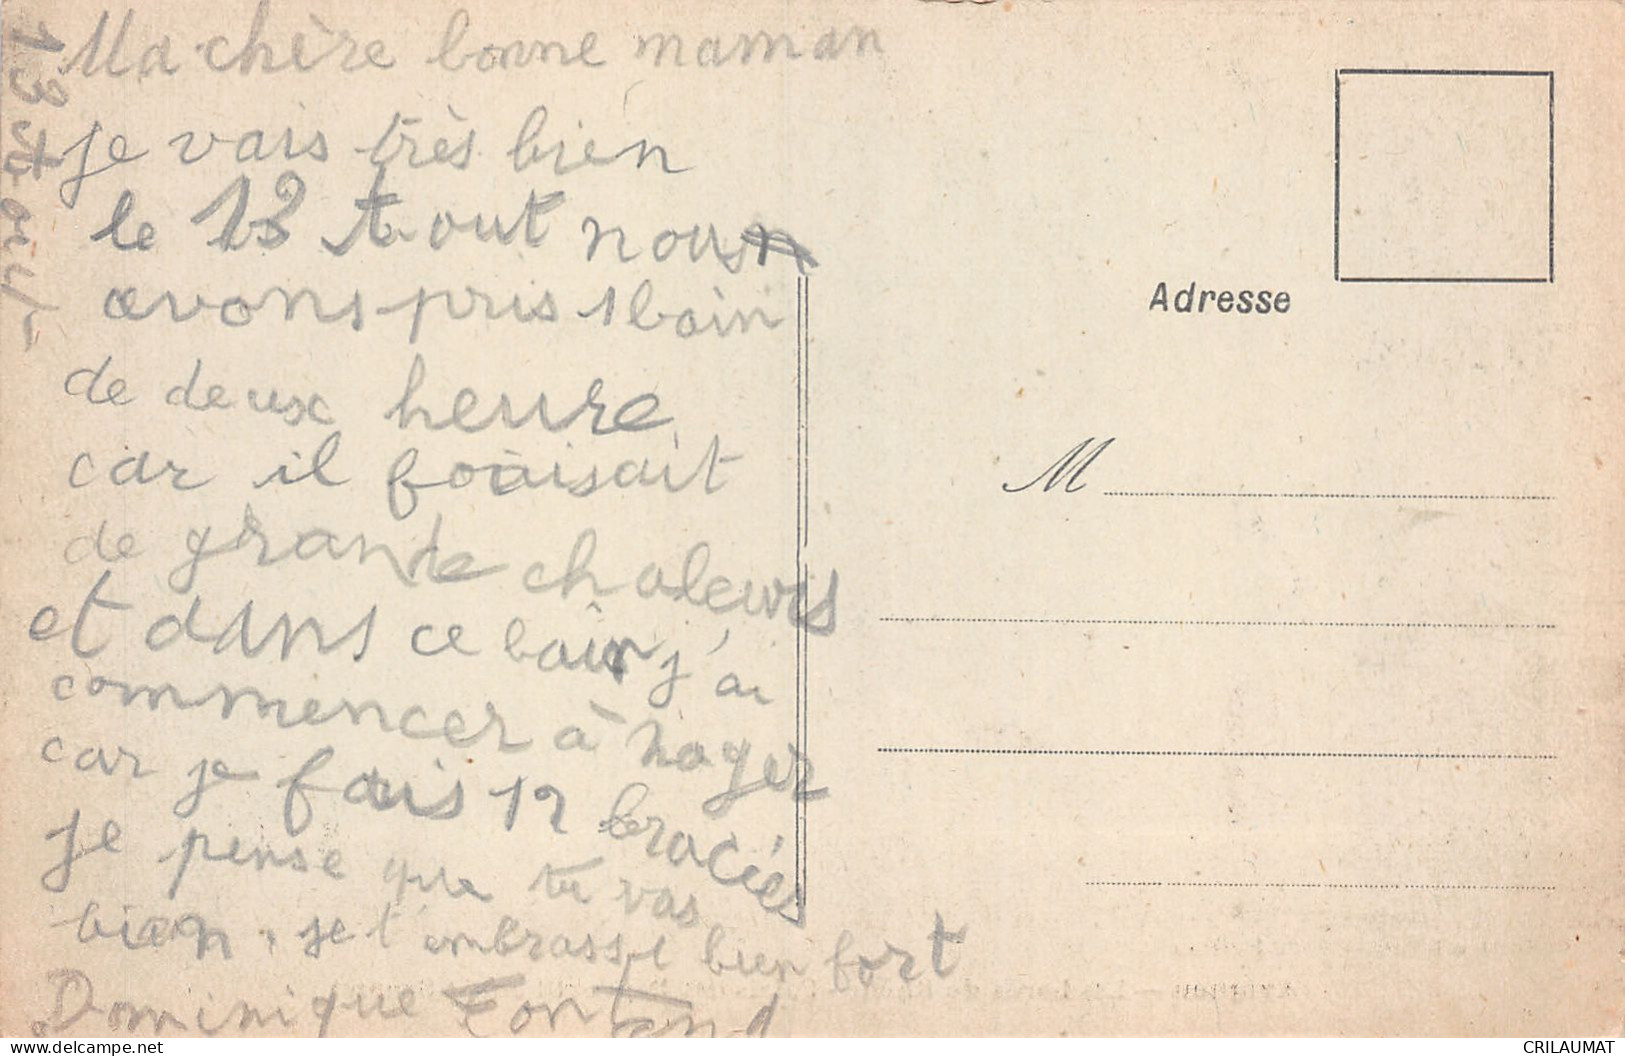 Ma chère bonne maman
je vais très bien
le 13 t out nous
avons pris 1 bain
de deux heure
car il foaisait
de grande chaleurs
et dans ce bain j'ai
commencer à nager
car je fais 12 bracées
je pense que tu vas
bien, je t'embrasse bien fort
Dominique
13 t out
Adresse
M
CRILAUMAT